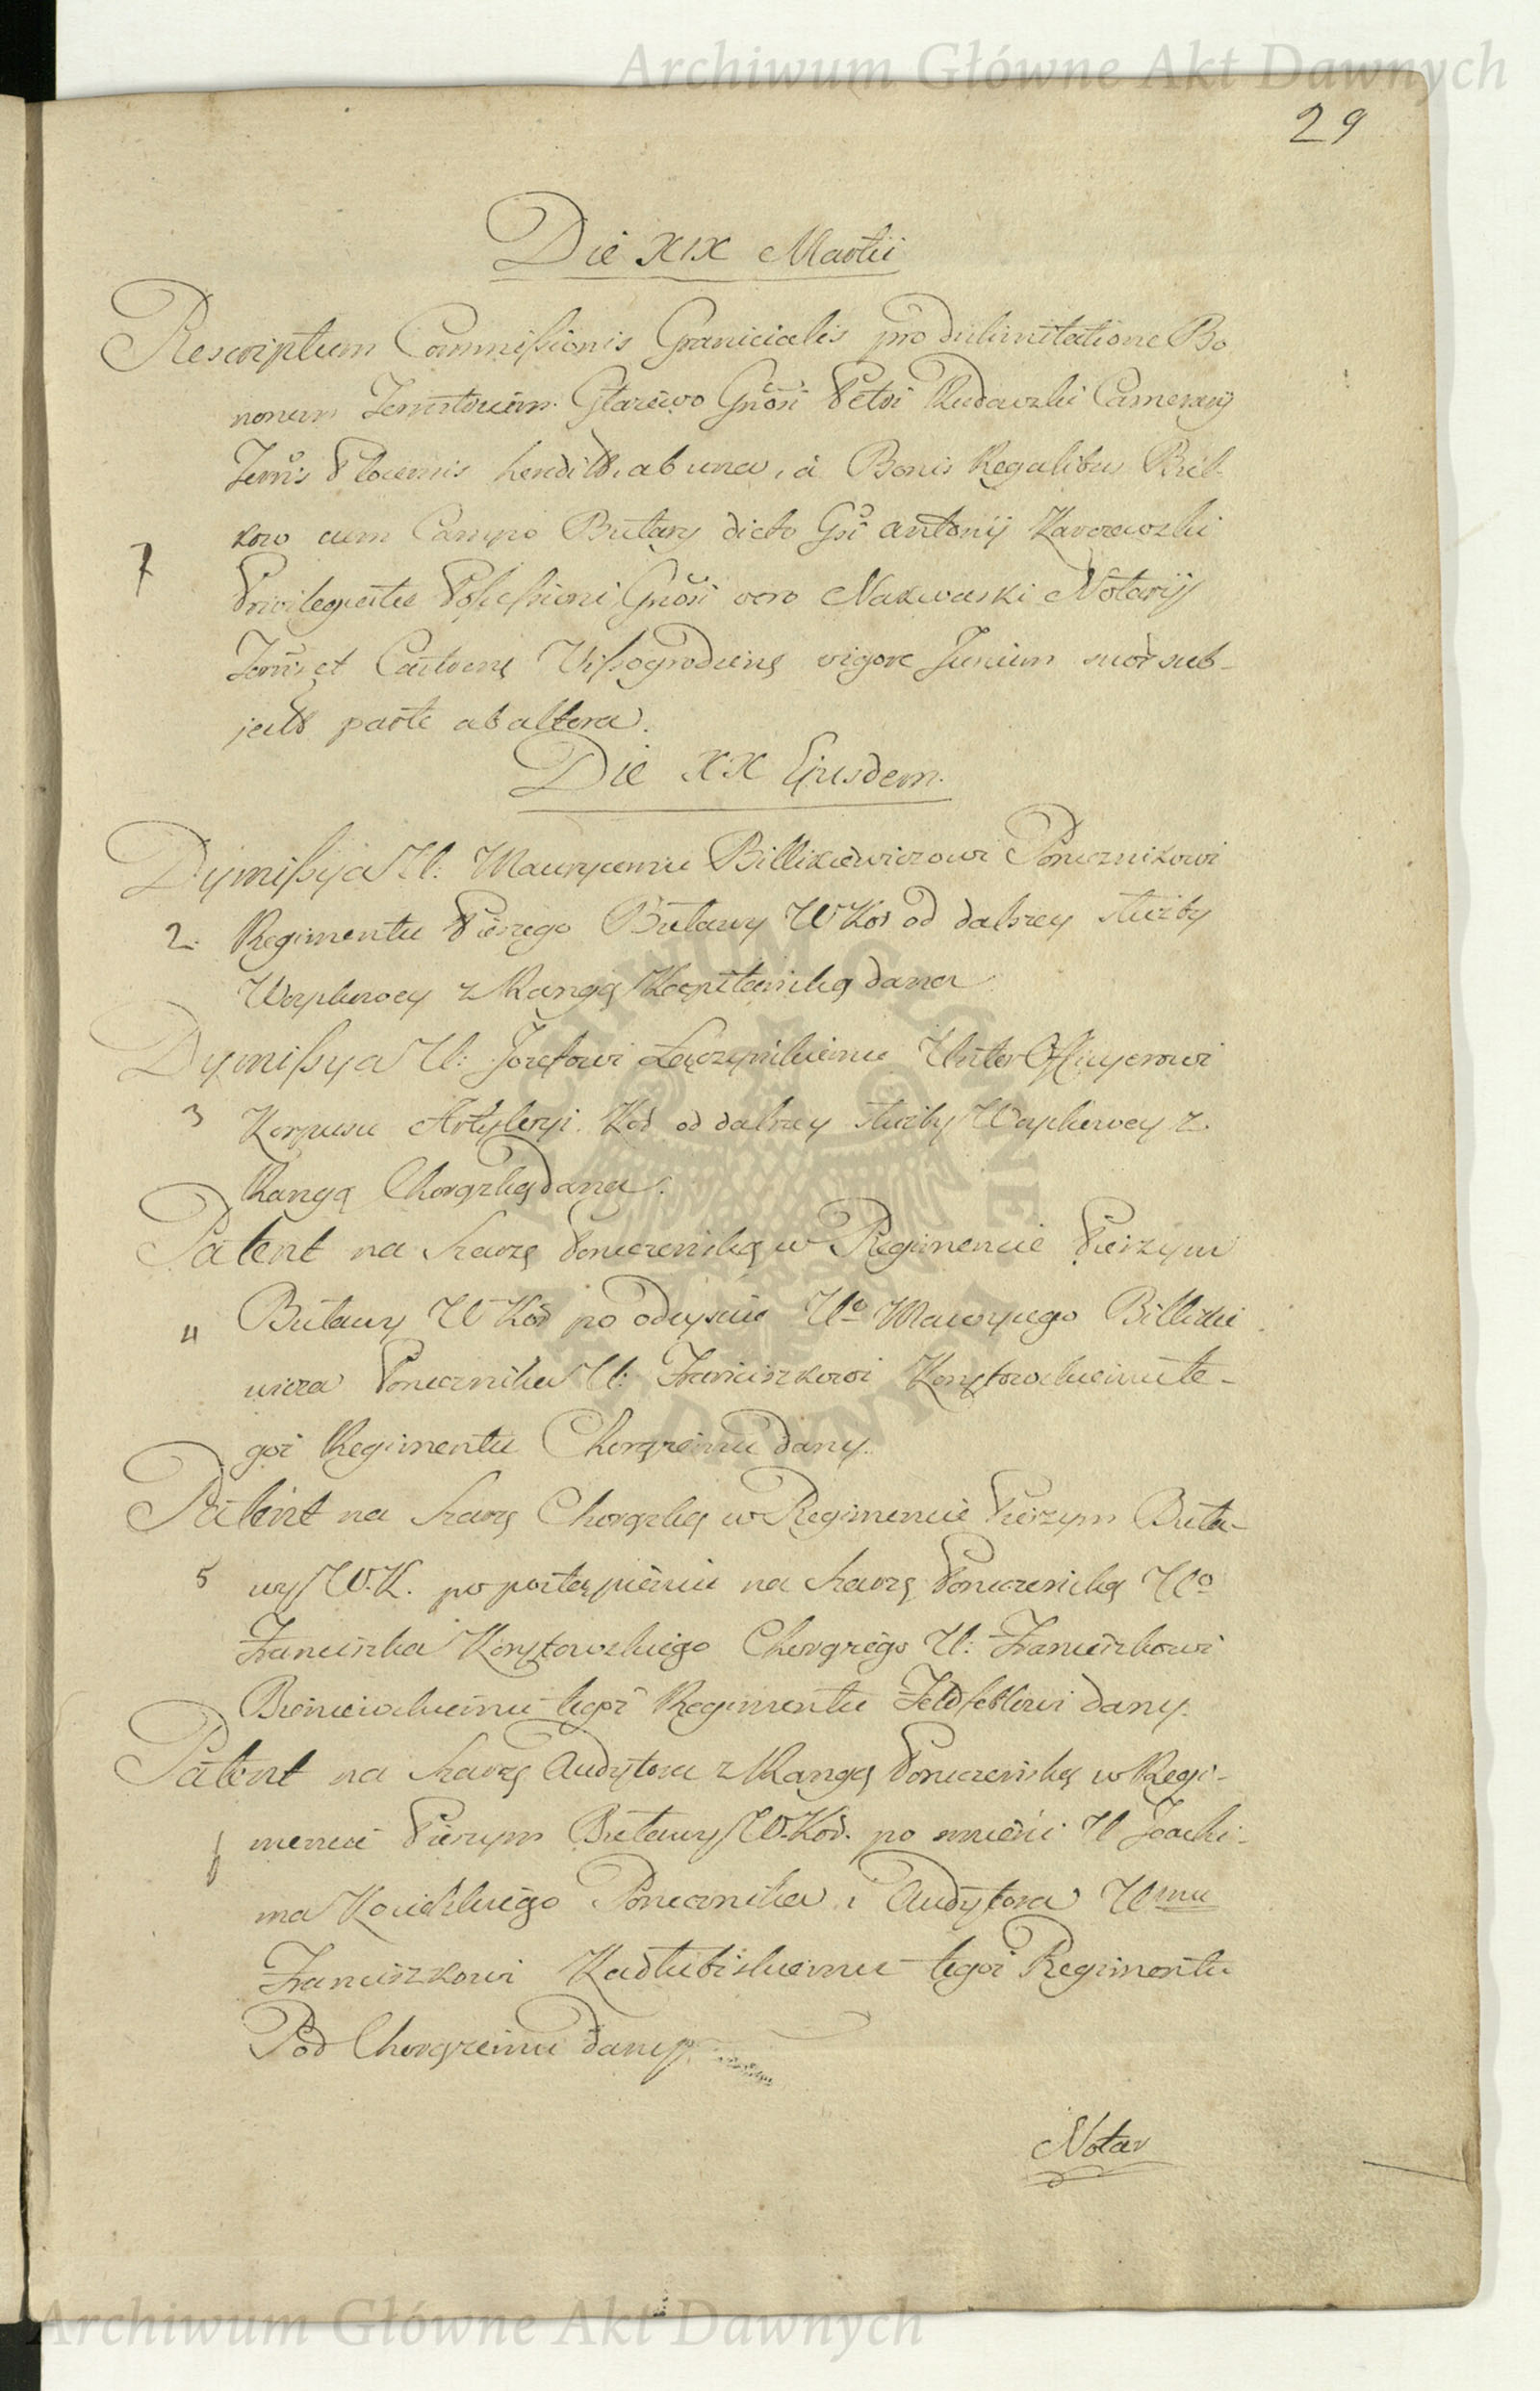 Archiwum Główne Akt Dawnych
29
Die XIX Martii
Rescriptum Commissionis Granicialis pro dislimitatione Bo
norum Terrestrium Gnosi Petri Rudawski Camerarij
Terris Plocensis ab una, à Bonis Regalibus Bul-
kowo cum Campo Butary dicto Gsi Antonij Karczewski
Privilegiatae Possessioni Gnosi vero Nakwaski Notarij
Terris et Castrens Vissogrodiens vigore Jurium suor sub-
parte ab altera.
Die XX Ejusdem.
Dymissya U: Maurycemu Billikiewiczowi Porucznikowi
2. Regimentu Pieszego Buławy W Kor od dalszey służby
Woyskowey z Rangą Kapitańską dana
Dymissya U: Jozefowi Łączyńskiemu Unter Officyerowi
3 Korpusu Artyleryi Kor od dalszey służby Woyskowey z
Rangą Chorążską dana.
Patent na Szarżę Porucznską w Regimencie Pieszym
4 Buławy W Kor po odeysciu Uo Maurycego Billikie
wicza Porucznika U: Franciszkowi te-
goż Regimentu Chorążemu dany.
Patent na Szarżę Chorążską w Regimencie Pieszym Buła-
5 wy W.K. po postąpieniu na Szarżę Porucznską Uo
Franciszka Chorążego U: Franciszkowi
tegoż Regimentu Feldfeblowi dany.
Patent na Szarżę Audytora z Rangą Porucznską w Regi-
6 mencie Pieszym Buławy W. Kor. po smierci U Joachi-
ma Porucznika i Audytora Umu
Franciszkowi Kadłubiskiemu tegoż Regimentu
Pod Chorążemu dany
Notar
Archiwum Główne Akt Dawnych